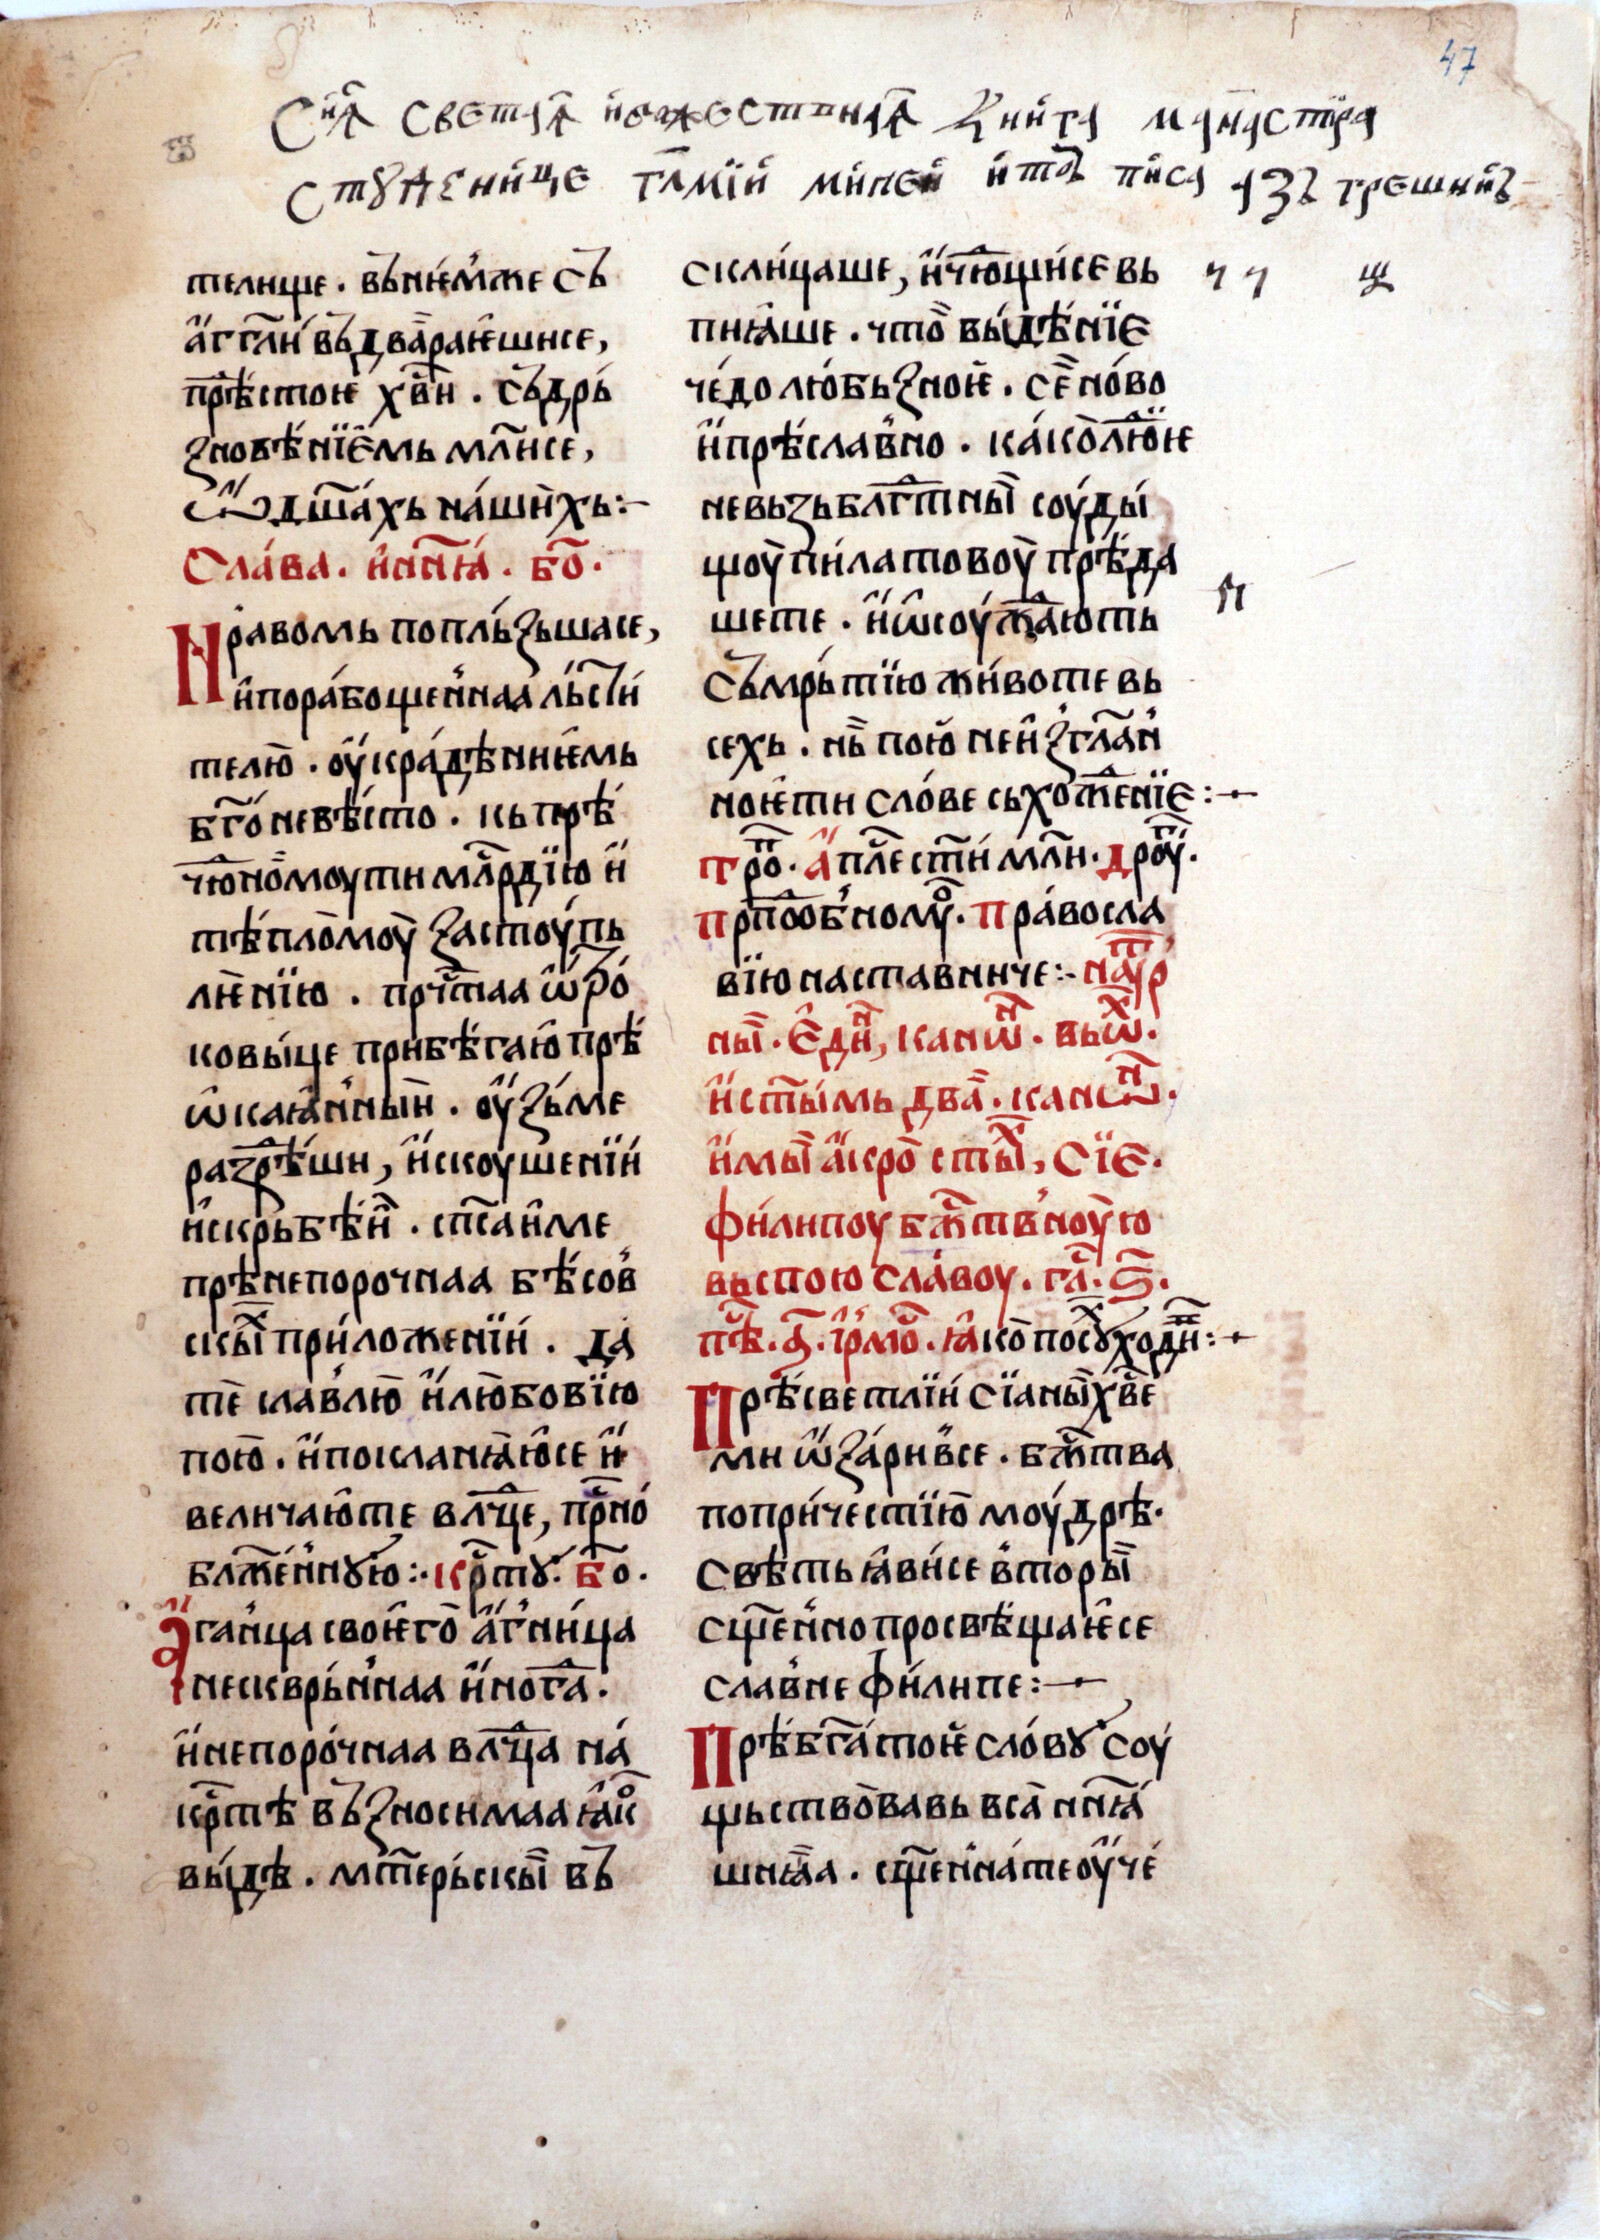 47
Сиꙗ светаꙗ и божествнаꙗ книга манастира
Стꙋденице глмїи минеи и тоꙁ писа азь грешнив
телище. вънѥмже съ
аггли въдвараѥшисе,
прѣстоѥ хви. съдрь
зновѣнїемь млисе,
ѿ дшахь нашихь:–
Слава. иннꙗ. бо.
Нравомь поплъзьшасе,
и порабощеннаа льсти
телю. оукрадѣниѥмь
бгоневѣсто. кь прѣ
чюномоути млрдїю и
тѣпломоу застоупь
лѥнїю. прчтаа ѡтро
ковыце прибѣгаю прѣ
ѡкаꙗнныи. оузьме
разрѣши, искоушенїи
искрьбѣи. спсаиме
прѣнепорочнаа бѣсов
скых приложенїи. да
те славлю и любовїю
пою. и покланꙗюсе и
величаюте влчце, прсно
блженнꙋю:· крстꙋ. бо.
Ꙗганца своѥго агница
нескврьннаа иногда.
и непорочнаа влчца на
крстѣ възносимаа ꙗко
выдѣ. мтерьскы въ
склицаше, и чюющисе вь
пиꙗше. что выдѣнїе
чедо любьзноѥ. се ново
и прѣславно. како люѥ
невьзьблгтны соуды
щоу пилатовоу прѣда
шете. и ѡсоужають
съмрьтїю животе вь
сехь. нь пою неизглан
ноѥти слове сьхожденїе:–
Трⷪ. апле сти мли. дроу.
прпобномꙋ. Правосла
вїю наставниче:- натр
ны. един, канѡн. вьѡх.
и стымь два. канѡн.
имы акросты, сїе.
филипоу бжтвноую
вьспою славоу. гл. ѕ.
пѣ. а. ірмо. ꙗко по сꙋхꙋ ходи:–
Прѣсветлїи сїаны хве
ми ѡзаривсе. бжтва
попричестїю моудрѣ.
свѣть ꙗвисе вторы
сщенно просвѣщаѥсе
славне филипе:–
Прѣбгатоѥ словꙋ соу
щьствовавь вса ннꙗ
шнꙗа. сщеннатеоуче
ч ч щ
п